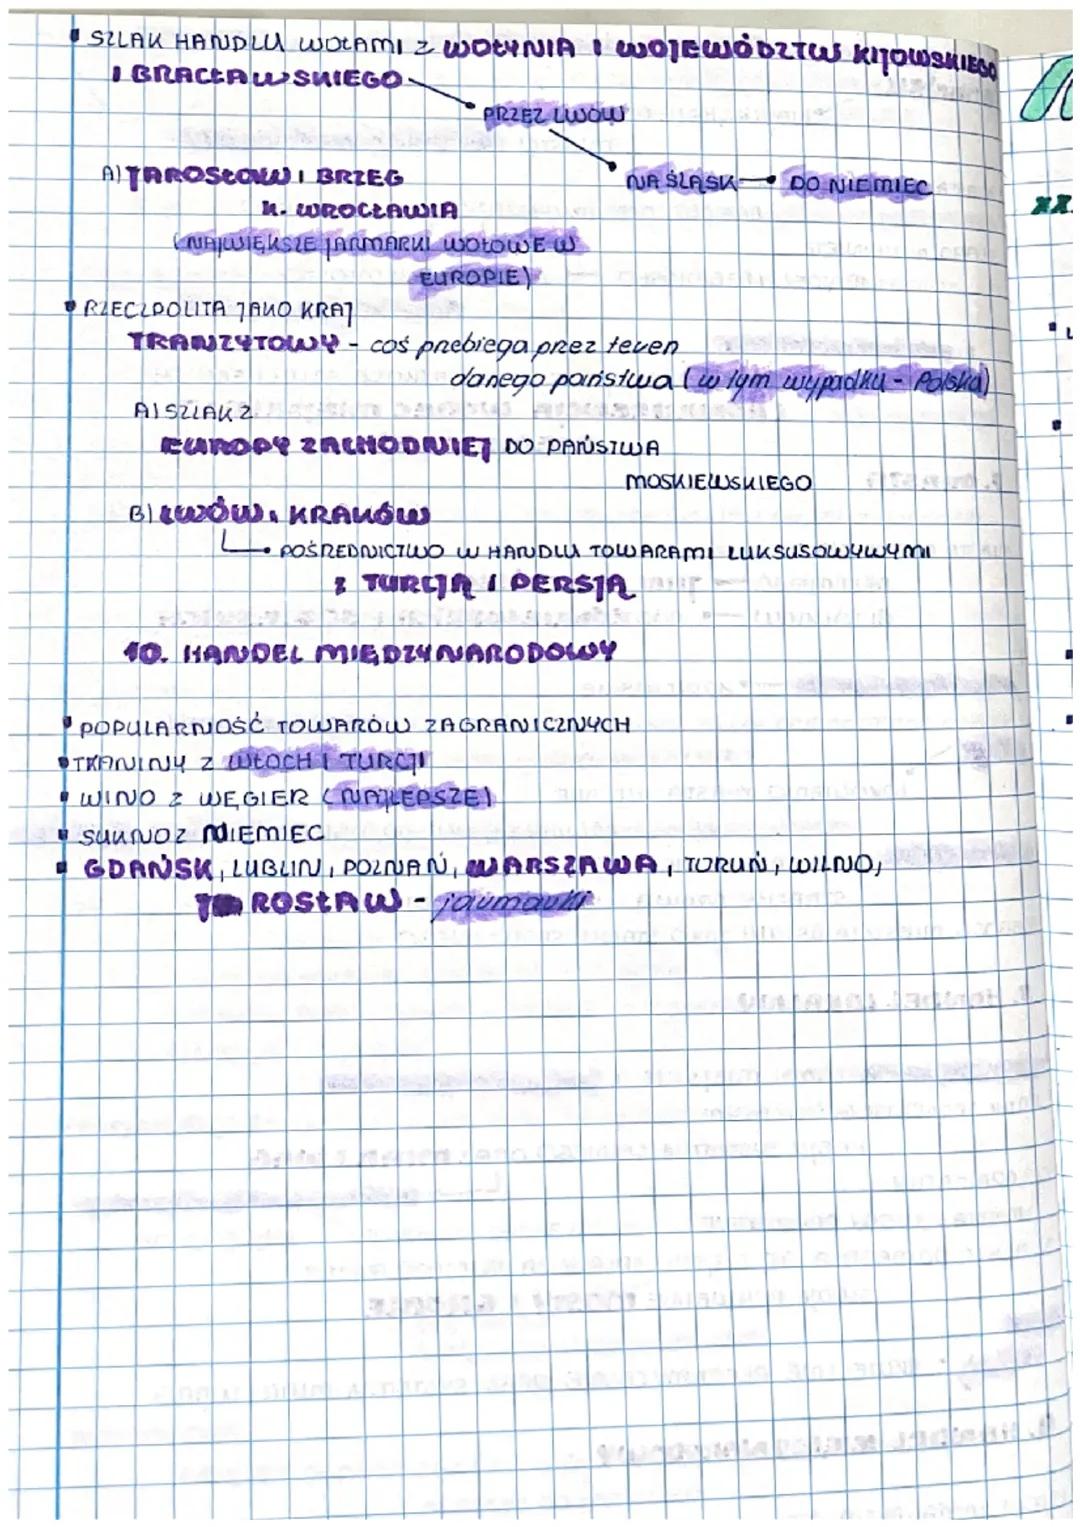 SZLAK HANDLU WOŁAMI Z WOŁYNIA I WOJEWÓDZTW KIJOWSKIEGO
I BRACŁAWSKIEGO
PRZEZ LWÓW
NA ŚLĄSK DO NIEMIEC
A) JAROSŁOW I BRZEG
K. WROCŁAWIA
(NAJWIĘKSZE JARMARKI WOŁOWE W
EUROPIE)
RZECZPOLITA JAKO KRAJ
TRANZYTOWY - coś przebiega przez teren
danego państwa (w tym wypadku - Polska)
A) SZLAK Z
EUROPY ZACHODNIEJ DO PAŃSTWA
MOSKIEWSKIEGO
B) LWÓW, KRAKÓW
POŚREDNICTWO W HANDLU TOWARAMI LUKSUSOWYWYMI
Z TURCJĄ I PERSJĄ
10. HANDEL MIĘDZYNARODOWY
POPULARNOŚĆ TOWARÓW ZAGRANICZNYCH
TKANINY Z WŁOCH I TURCJI
WINO Z WĘGIER (NAJLEPSZE)
SUKNO Z NIEMIEC
GDAŃSK, LUBLIN, POZNAŃ, WARSZAWA, TORUŃ, WILNO,
JAROSŁAW - jarmarki